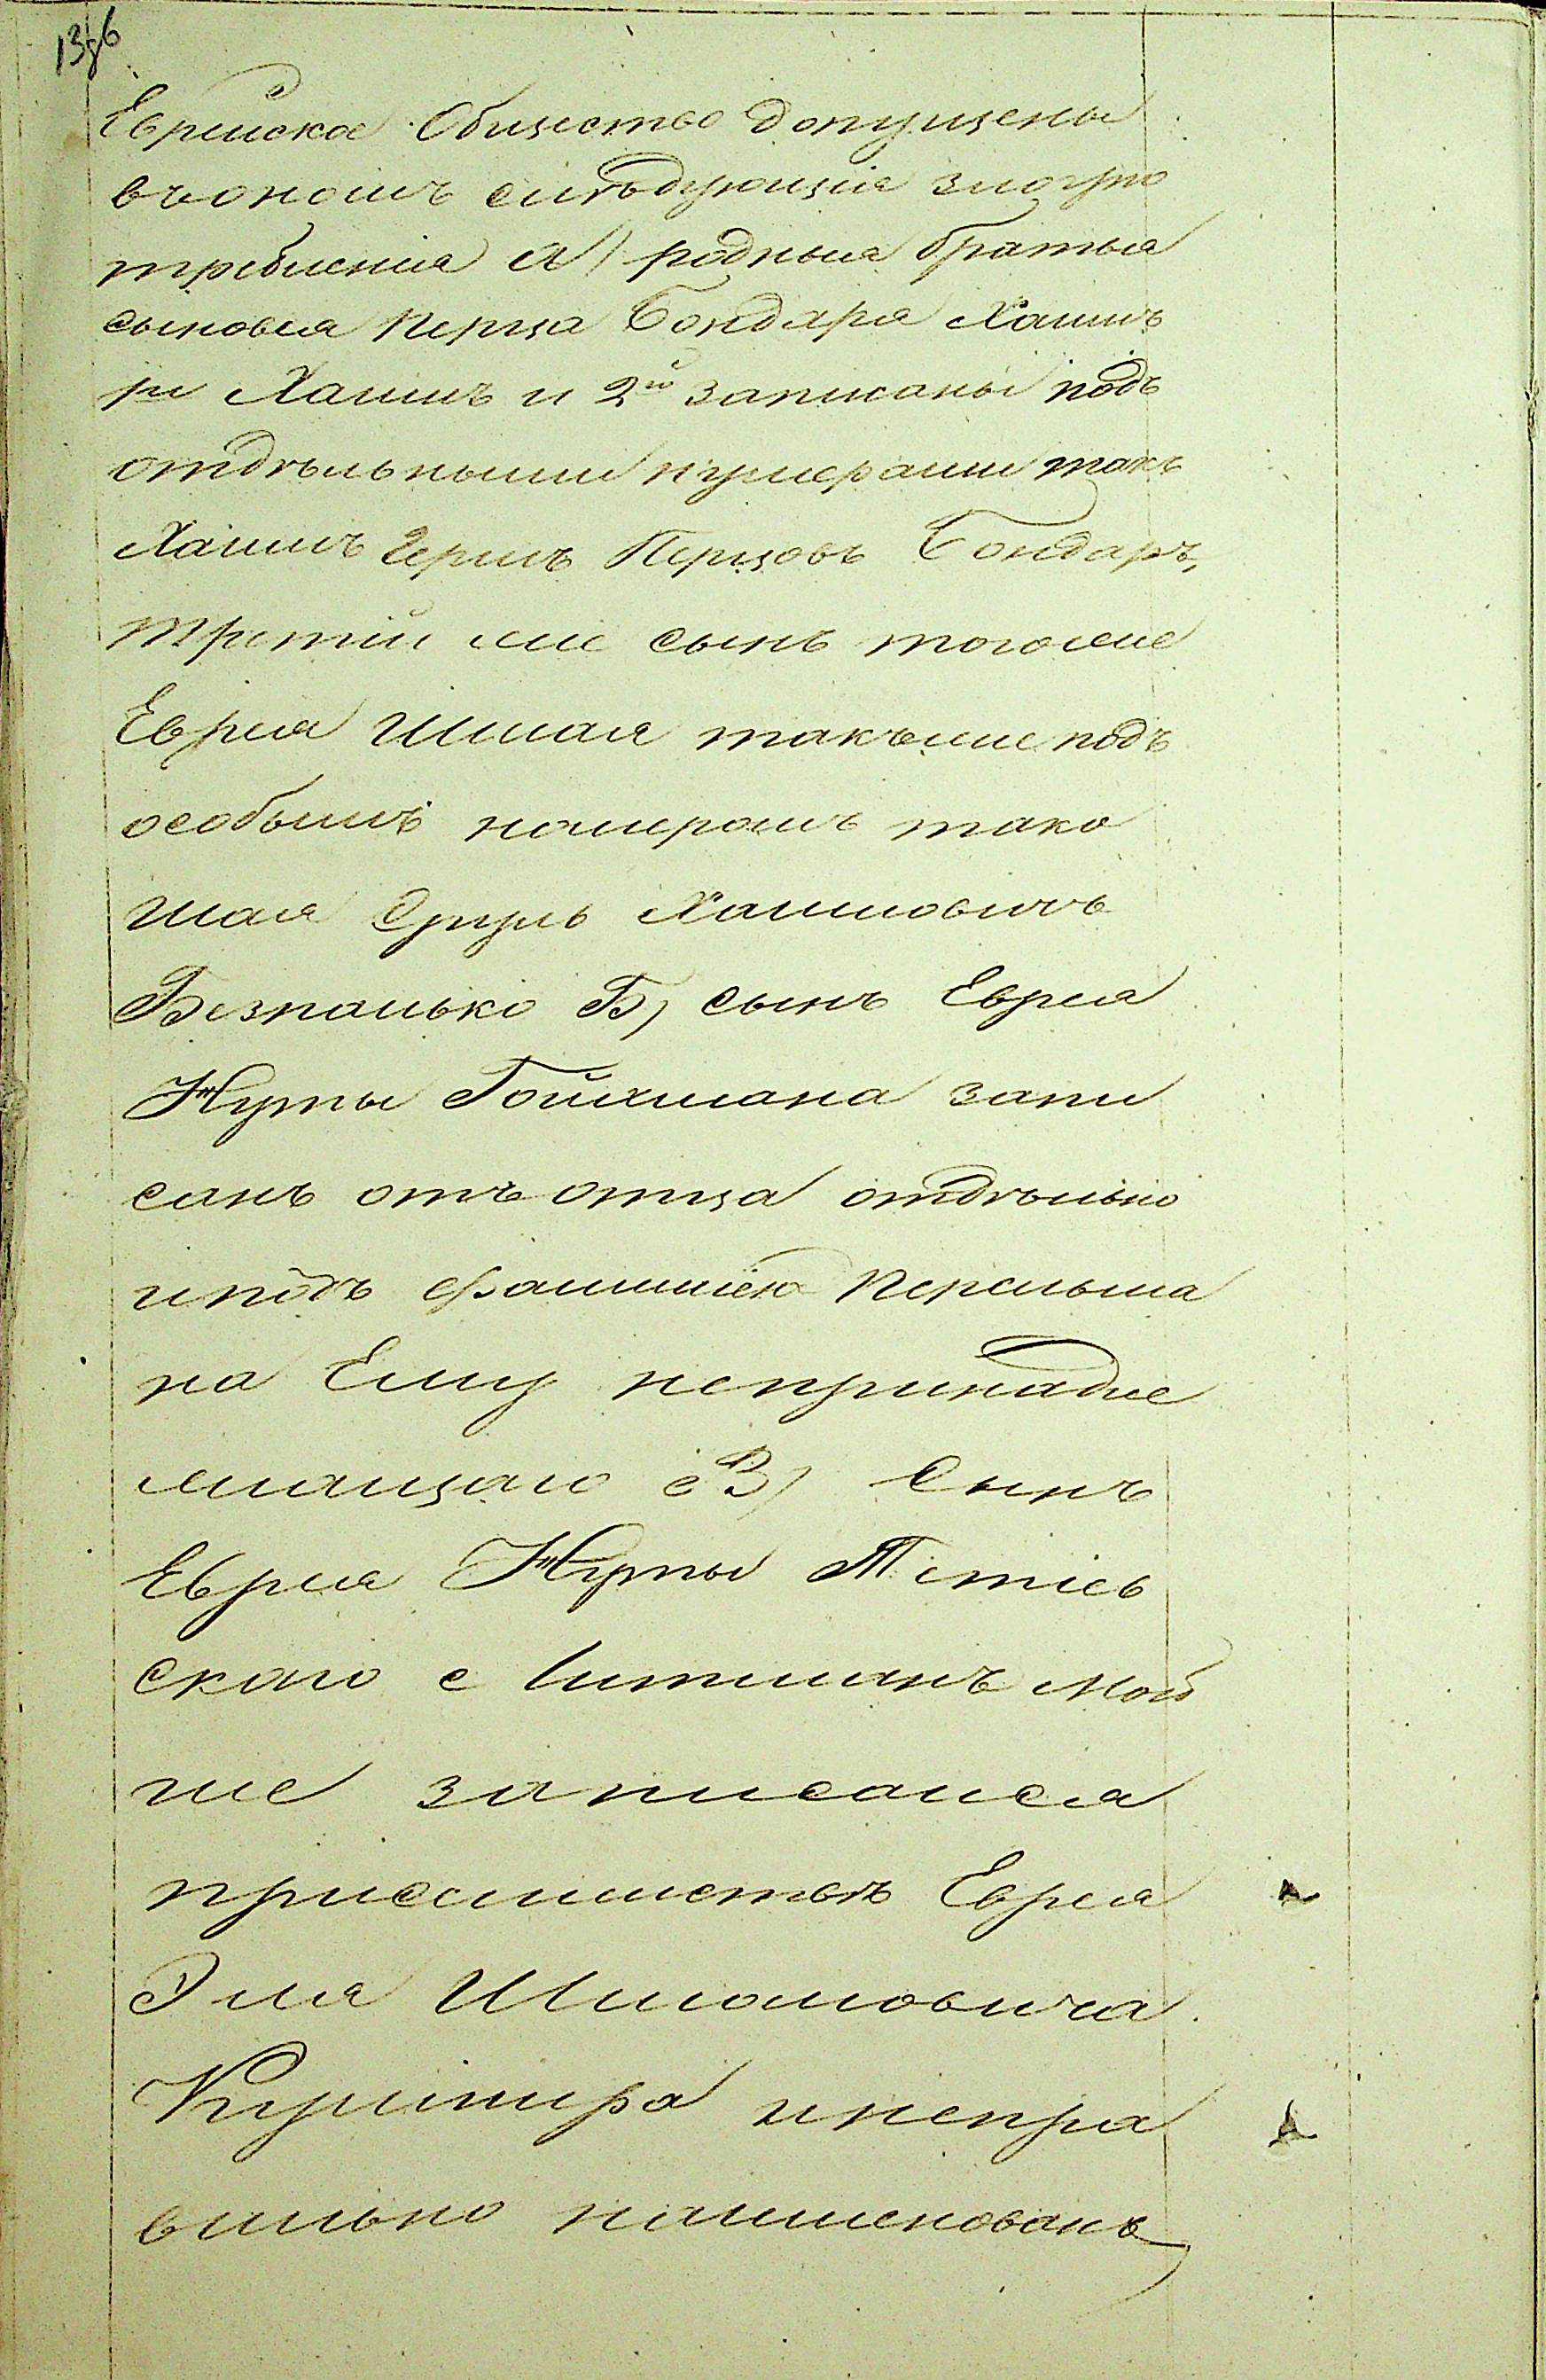 Еврейска Общество допущены
въ ономъ слѣдующія злоупо
требленія А) родныя братья
сыновья Перца Бондаря Хаимъ
Хаимъ и 2й записаны подъ
отдѣльными нумерами такъ
Хаимъ Гершъ Перцовъ Бондаръ,
третій же сынъ тогоже
Еврея Шмая такъже подъ
особымъ номеромъ тако
Шая Сруль Хаимовичъ
Безпалько Б) сынъ Еврея
Нуты Гойхмана запи
санъ отъ отца отдѣльно
и подъ фамиліею Перельма
на Ему непринадле
жащаго В) Сынъ
Еврея Нуты Тетіев
скаго Итманъ Мой
ше записанся
при семействѣ Еврея
Эля Шмаиовича
Кушнира и непра
вильно наименованъ